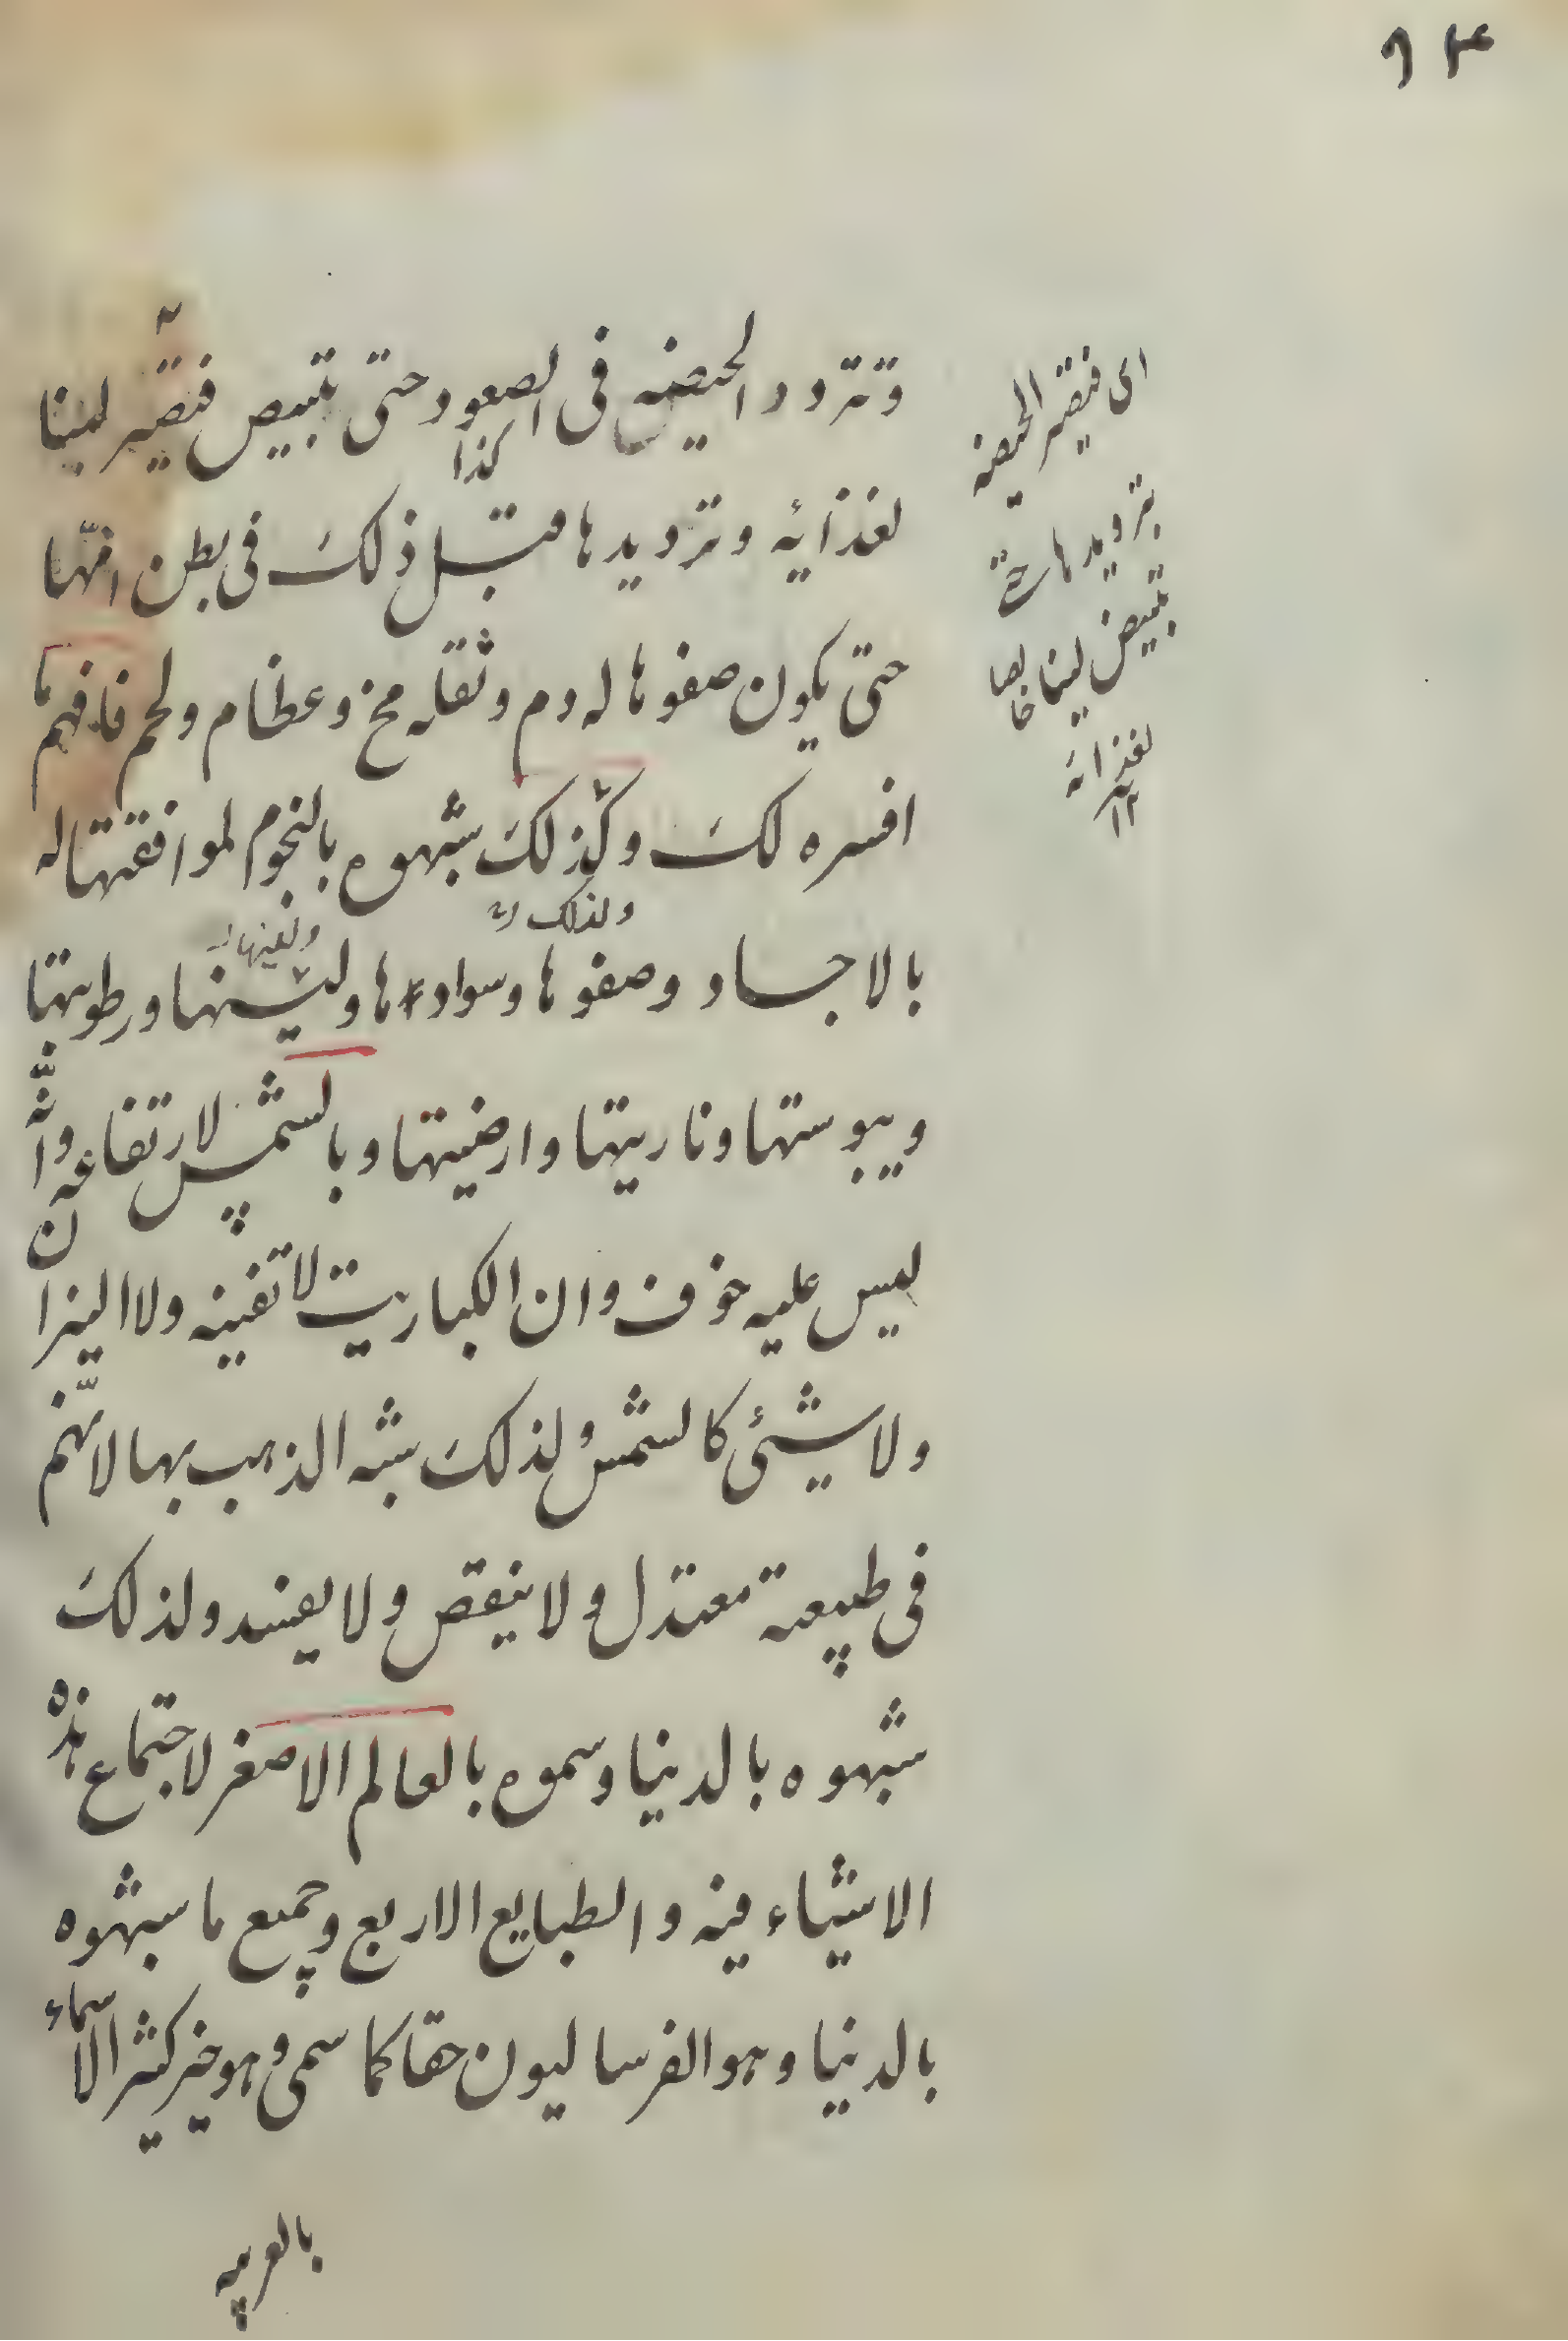 ۹۴
وتردد الحيضه فى الصعود حتى تبيض فتصير لبنا
كذا
لغذائه وترديدها قبل ذلك فى بطن امها
حتى يكون صفوها له دم وثقله مخ وعظام ولحم فافهم ما
افسره لك وكذلك شبهوه بالنجوم لموافقتها له
ولذلك
بالاجساد وصفوها وسوادها ولينها ورطوبتها
ويبوستها وناريتها وارضيتها وبالشمس لارتفاعه وانه
ليس عليه خوف وان الكباريت لا تفنيه ولا النيران
ولا شئ كالشمس ولذلك شبه الذهب بها لانهم
فى طبيعة معتدل ولا ينقص ولا يفسد ولذلك
شبهوه بالدنيا وسموه بالعالم الاصغر لاجتماع هذه
الاشياء فيه والطبايع الاربع وجميع ما شبهوه
بالدنيا وهو الفرساليون حقا كما سمى وهو خير كثير الاسماء
بالعربيه
اى فيصير الحيضه
بترديدها حتى
تبيض لبنا خالصا
لغذائه
۱۲